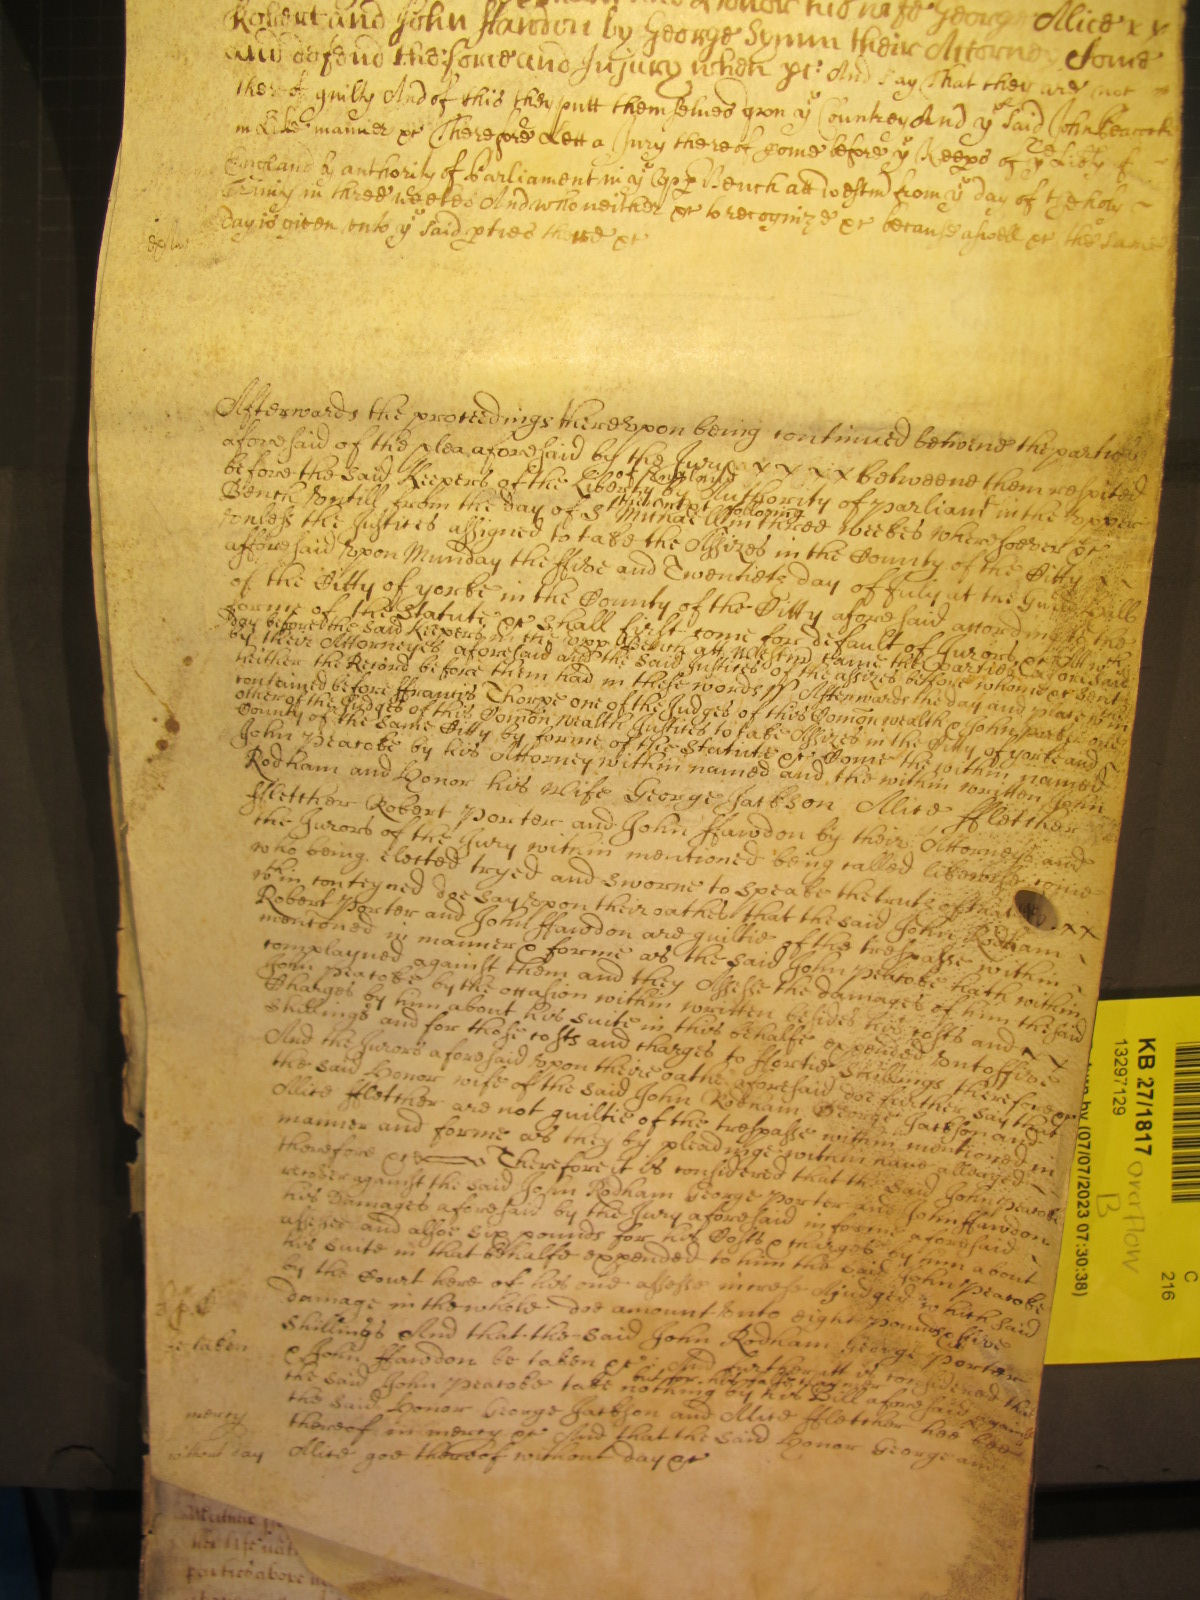 Honor his wife George
Robert and John Hawdon by George Symm their Attorney Come
and defend the force and Injury when &c And say That they are not
thereof guilty And of this they putt themselves upon ye Countrey And ye said John Peacocke
in like manner &c Therefore Lett a Jury thereof come before ye Keeps of ye Liberty of
England by authority of Parliament in ye Upp Bench att Westm from ye day of the holy
Trinity in three weekes And who neither &c to recognize &c because aswell &c the same
Day is given unto ye said pties there &c
Afterwards the proceedings thereupon being continued betwene the parties
aforesaid of the plea aforesaid by the Jury x x x x betweene them respited
before the said Keepers of the Liberty of England by Authority of parliamt in the upper
Bench untill from the day of St Michaell in three weekes then next following wheresoever &c
unless the Justices assigned to take the Assizes in the County of the Citty
afforesaid upon Munday the ffive and Twentieth day of July at the Guildhall
of the Citty of yorke in the County of the Citty aforesaid according to the
forme of the Statute &c shall first come for default of Jurors &c Att wch
day before the said Keepers in the upp Bench att Westm came the parties aforesaid
by their Attorneyes aforesaid and the said Justices of the assizes before whome &c sent
hither the Record before them had in these words ss Afterwards the day and place within
contained before ffrancis Thorpe one of the Judges of this Comonwealth & John Parker one
other of the Judges of this Comonwealth Justices to take Assizes in the Citty of yorke and
County of the same Citty by forme of the Statute &c Come the within named
John Peacocke by his Attorney within named and the within written John
Rodham and Honor his wife George Jackson Alice ffletcher
ffletcher Robert Porter and John Hawdon by their Attorneys and
the Jurors of the Jury within mentioned being called likewise come
who being elected tryed and sworne to speake the truth of the
wthin conteyned doe say upon their oathes that the said John Rodham
Robert Porter and John Hawdon are guiltie of the trespasse within
mentioned in manner & forme as the said John Peacocke hath within
complayned against them and they Assesse the damages of him the said
John Peacocke by the occasion within written besides his costs and
Charges by him about his suite in this behalfe expended unto ffive
Shillings and for those costs and charges to ffortie Shillings therefore &c
And the Jurors aforesaid upon theire oathe aforesaid doe further say that
the said Honor wife of the said John Rodham George Jackson and
Alice ffletcher are not guiltie of the trespasse within mentioned in
manner and forme as they by pleadinge within have alleaged
therefore &c Therefore it is considered that the said John Peacocke
recover against the said John Rodham George Porter and John Hawdon
his Damages aforesaid by the Jury aforesaid in forme aforesaid
assessed and alsoe six pounds for his Costs & charges by him about
his suite in that behalfe expended to him the said John Peacocke
by the Court here of his one assesse increse Ajudged which said
damage in the whole doe amount unto eight pounds & ffive
Shillings And that the said John Rodham George Porter
& John Hawdon be taken &c And further itt is considered that
the said John Peacocke take nothing by his Bill aforesaid against
but for his false clamer
the said Honor George Jackson and Alice ffletcher hee bee
thereof in mercy &c And that the said Honor George and
Alice goe thereof without day &c
be taken
mercy
without day
KB 27/1817
13297129
overflow
B
(07/07/2023 07:30:38)
C
216